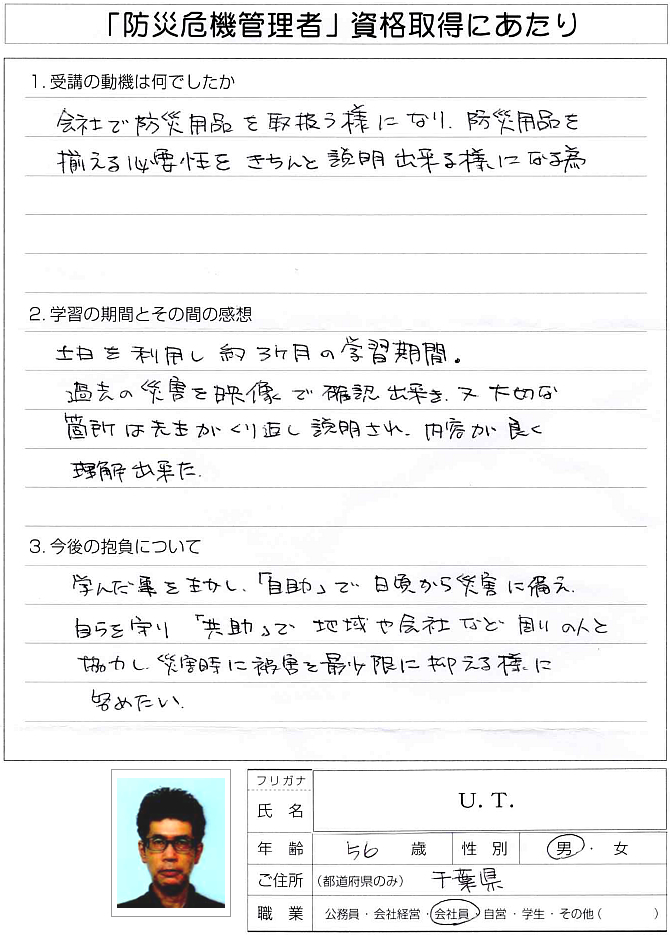 「防災危機管理者」資格取得にあたり
1. 受講の動機は何でしたか
会社で防災用品を取扱う様になり、防災用品を
揃える必要性をきちんと説明出来る様になる為
2. 学習の期間とその間の感想
土日を利用し約3ヶ月の学習期間。
過去の災害を映像で確認出来き、又大切な
箇所は先生がくり返し説明され、内容が良く
理解出来た。
3. 今後の抱負について
学んだ事を生かし、「自助」で日頃から災害に備え、
自らを守り「共助」で地域や会社など周りの人と
協力し、災害時に被害を最少限に抑える様に
努めたい。
フリガナ
氏 名 U. T.
年 齢 56 歳 性 別 男・女
ご住所 (都道府県のみ) 千葉県
職 業 公務員・会社経営・会社員・自営・学生・その他( )